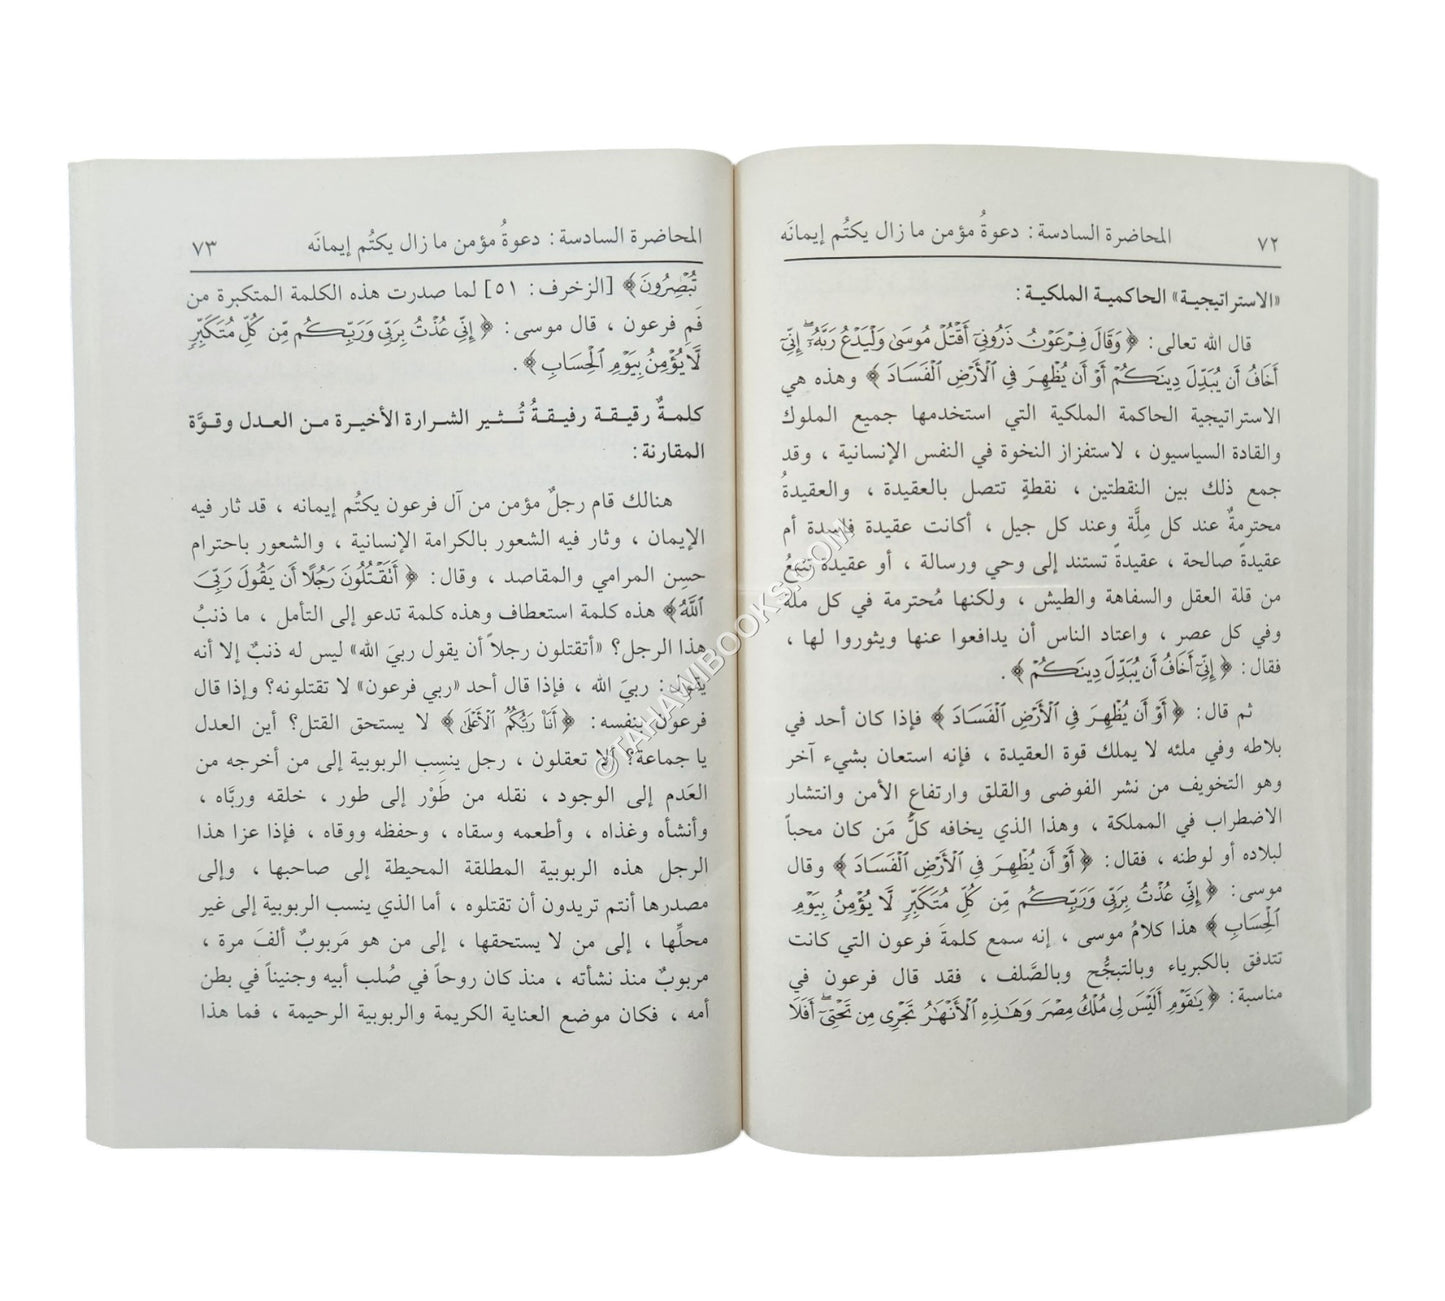 ٧٢ المحاضرة السادسة: دعوةُ مؤمن ما زال يكتُم إيمانَه
«الاستراتيجية» الحاكمية الملكية:
قال الله تعالى: ﴿ وَقَالَ فِرْعَوْنُ ذَرُونِىٓ أَقْتُلْ مُوسَىٰ وَلْيَدْعُ رَبَّهُۥٓ ۖ إِنِّىٓ
أَخَافُ أَن يُبَدِّلَ دِينَكُمْ أَوْ أَن يُظْهِرَ فِى ٱلْأَرْضِ ٱلْفَسَادَ ﴾ وهذه هي
الاستراتيجية الحاكمة الملكية التي استخدمها جميع الملوك
والقادة السياسيون ، لاستفزاز النخوة في النفس الإنسانية ، وقد
جمع ذلك بين النقطتين ، نقطةٍ تتصل بالعقيدة ، والعقيدةُ
محترمةٌ عند كل مِلَّة وعند كل جيل ، أكانت عقيدة فاسدة أم
عقيدةً صالحة ، عقيدةً تستند إلى وحي ورسالة ، أو عقيدة تنبعُ
من قلة العقل والسفاهة والطيش ، ولكنها مُحترمة في كل ملة
وفي كل عصر ، واعتاد الناس أن يدافعوا عنها ويثوروا لها ،
فقال: ﴿ إِنِّىٓ أَخَافُ أَن يُبَدِّلَ دِينَكُمْ ﴾ .
ثم قال: ﴿ أَوْ أَن يُظْهِرَ فِى ٱلْأَرْضِ ٱلْفَسَادَ ﴾ فإذا كان أحد في
بلاطه وفي ملئه لا يملك قوة العقيدة ، فإنه استعان بشيء آخر
وهو التخويف من نشر الفوضى والقلق وارتفاع الأمن وانتشار
الاضطراب في المملكة ، وهذا الذي يخافه كلُّ مَن كان محباً
لبلاده أو لوطنه ، فقال: ﴿ أَوْ أَن يُظْهِرَ فِى ٱلْأَرْضِ ٱلْفَسَادَ ﴾ وقال
موسى: ﴿ إِنِّى عُذْتُ بِرَبِّى وَرَبِّكُم مِّن كُلِّ مُتَكَبِّرٍ لَّا يُؤْمِنُ بِيَوْمِ
ٱلْحِسَابِ ﴾ هذا كلامُ موسى ، إنه سمع كلمةَ فرعون التي كانت
تتدفق بالكبرياء وبالتبجُّح وبالصَّلف ، فقد قال فرعون في
مناسبة: ﴿ يَٰقَوْمِ أَلَيْسَ لِى مُلْكُ مِصْرَ وَهَٰذِهِ ٱلْأَنْهَٰرُ تَجْرِى مِن تَحْتِىٓ ۖ أَفَلَا
المحاضرة السادسة: دعوةُ مؤمن ما زال يكتُم إيمانَه ٧٣
تُبْصِرُونَ﴾ [الزخرف: ٥١] لما صدرت هذه الكلمة المتكبرة من
فَمِ فرعون ، قال موسى: ﴿ إِنِّى عُذْتُ بِرَبِّى وَرَبِّكُم مِّن كُلِّ مُتَكَبِّرٍ
لَّا يُؤْمِنُ بِيَوْمِ ٱلْحِسَابِ ﴾ .
كلمةٌ رقيقة رفيقةُ تُثير الشرارة الأخيرة من العدل وقوَّة
المقارنة:
هنالك قام رجلٌ مؤمن من آل فرعون يكتُم إيمانه ، قد ثار فيه
الإيمان ، وثار فيه الشعور بالكرامة الإنسانية ، والشعور باحترام
حسِن المرامي والمقاصد ، وقال: ﴿ أَتَقْتُلُونَ رَجُلًا أَن يَقُولَ رَبِّىَ
ٱللَّهُ﴾ هذه كلمة استعطاف وهذه كلمة تدعو إلى التأمل ، ما ذنبُ
هذا الرجل؟ «أتقتلون رجلاً أن يقول ربيَ الله» ليس له ذنبٌ إلا أنه
يقول: ربيَ الله ، فإذا قال أحد «ربي فرعون» لا تقتلونه؟ وإذا قال
فرعون بنفسه: ﴿أَنَا۠ رَبُّكُمُ ٱلْأَعْلَىٰ﴾ لا يستحق القتل؟ أين العدل
يا جماعة؟ ألا تعقلون ، رجل ينسِب الربوبية إلى من أخرجه من
العَدم إلى الوجود ، نقله من طَوْر إلى طور ، خلقه وربَّاه ،
وأنشأه وغذاه ، وأطعمه وسقاه ، وحفظه ووقاه ، فإذا عزا هذا
الرجل هذه الربوبية المطلقة المحيطة إلى صاحبها ، وإلى
مصدرها أنتم تريدون أن تقتلوه ، أما الذي ينسب الربوبية إلى غير
محلِّها ، إلى من لا يستحقها ، إلى من هو مَربوبٌ ألفَ مرة ،
مربوبٌ منذ نشأته ، منذ كان روحاً في صُلب أبيه وجنيناً في بطن
أمه ، فكان موضع العناية الكريمة والربوبية الرحيمة ، فما هذا
©TAHAWIBOOKS.COM